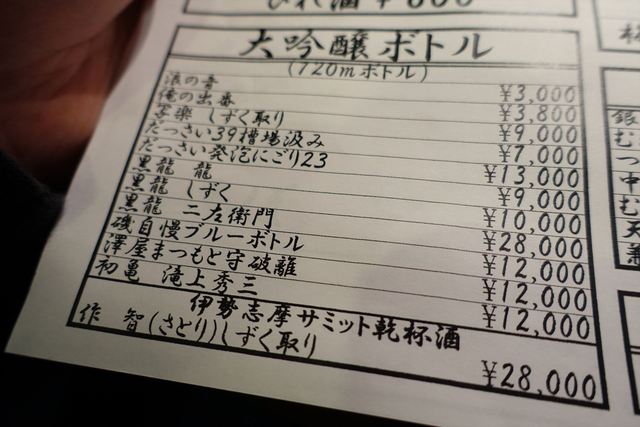 ひれ酒 ¥800
大吟醸ボトル
(720mボトル)
浪の音 ¥3,000
俺の出番 ¥3,800
写楽 しずく取り ¥9,000
だっさい39槽場汲み ¥7,000
だっさい発泡にごり23 ¥13,000
黒龍 龍 ¥9,000
黒龍 しずく ¥10,000
黒龍 二左衛門 ¥28,000
磯自慢ブルーボトル ¥12,000
澤屋まつもと守破離 ¥12,000
初亀 滝上秀三 ¥12,000
伊勢志摩サミット乾杯酒
作 智(さとり)しずく取り ¥28,000
銀
む
つ
中
む
天